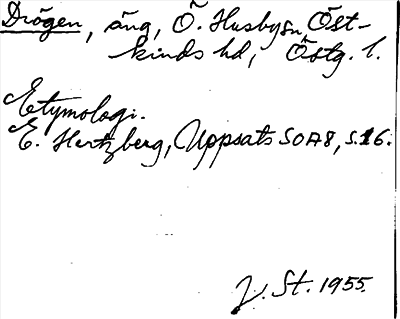 Drögen, äng, Ö. Husby sn, Öst-
kinds hd, Östg. l.
Etymologi.
E. Hertzberg, Uppsats SOÄ8, s.16.
J. St. 1955.